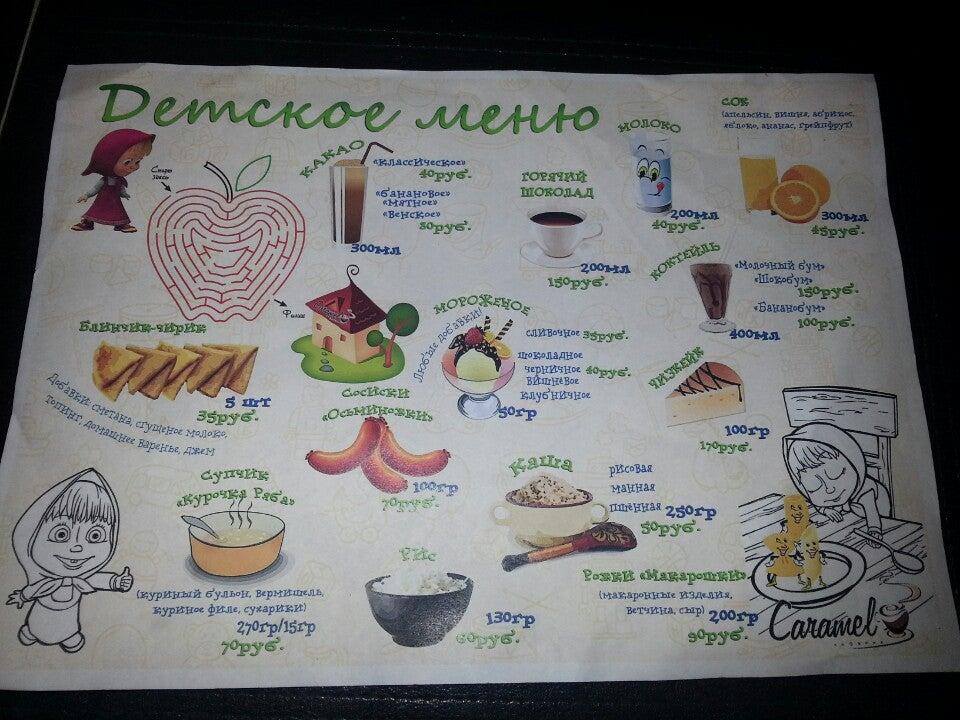 Детское меню
Старт
здесь
Финиш
КАКАО
«классическое»
40руб.
«банановое»
«мятное»
«Венское»
80руб.
300мл
ГОРЯЧИЙ
ШОКОЛАД
200мл
150руб.
МОЛОКО
200мл
40руб.
СОК
(апельсин, вишня, абрикос,
яблоко, ананас, грейпфрут)
300мл
45руб.
КОКТЕЙЛЬ
«Молочный бум»
«Шокобум»
150руб.
«Бананобум»
100руб.
400мл
БЛИНЧИК-ЧИРИК
5 шт
35руб.
Добавки: сметана, сгущеное молоко,
топинг, домашнее варенье, джем
МОРОЖЕНОЕ
Любые добавки!
сливочное 35руб.
шоколадное
черничное 40руб.
вишневое
клубничное
50гр
ЧИЗКЕЙК
100гр
170руб.
СОСИСКИ
«ОСЬМИНОЖКИ»
100гр
70руб.
СУПЧИК
«Курочка Ряба»
(куриный бульон, вермишель,
куриное филе, сухарики)
270гр/15гр
70руб.
КАША
рисовая
манная
пшенная 250гр
50руб.
РИС
130гр
60руб.
Рожки «Макарошки»
(макаронные изделия,
ветчина, сыр) 200гр
90руб.
Caramel